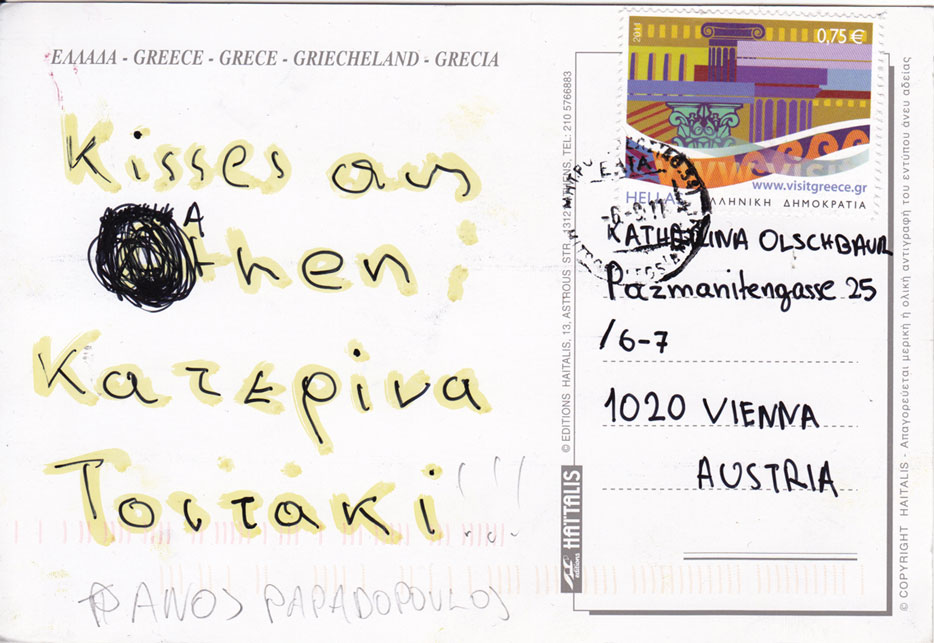 ΕΛΛΑΔΑ - GREECE - GRECE - GRIECHELAND - GRECIA
Kisses aus
Athen;
Κατερίνα
Τοστάκι!!!
PANOS PAPADOPOULOS
© EDITIONS HAITALIS, 13, ASTROUS STR., 1312 ATHENS, TEL: 210 5766883
editions HAITALIS
2011
0,75 €
www.visitgreece.gr
HELLAS ΕΛΛΗΝΙΚΗ ΔΗΜΟΚΡΑΤΙΑ
-6-9.11
KATHARINA OLSCHBAUR
Pazmanitengasse 25
/6-7
1020 VIENNA
AUSTRIA
© COPYRIGHT HAITALIS - Απαγορεύεται μερική ή ολική αντιγραφή του εντύπου άνευ αδείας